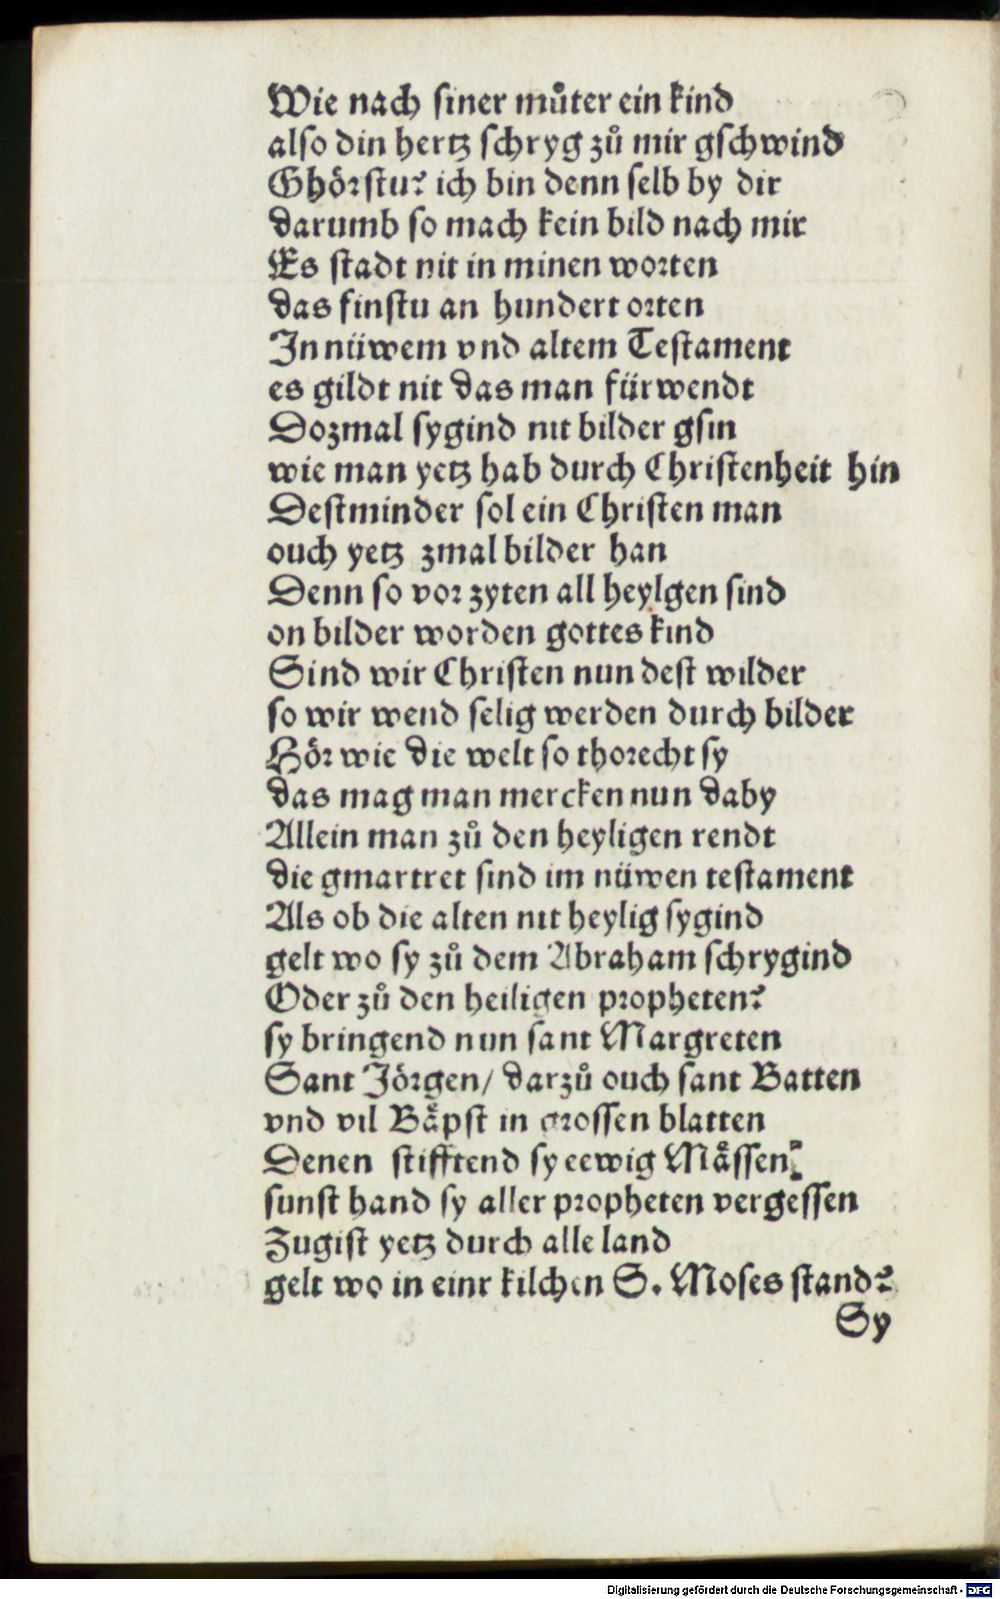 Wie nach siner můter ein kind
also din hertz schryg zů mir gschwind
Ghörstu? ich bin denn selb by dir
darumb so mach kein bild nach mir
Es stadt nit in minen worten
das finstu an hundert orten
In nüwem vnd altem Testament
es gildt nit das man fürwendt
Dozmal sygind nit bilder gsin
wie man yetz hab durch Christenheit hin
Destminder sol ein Christen man
ouch yetz zmal bilder han
Denn so vor zyten all heylgen sind
on bilder worden gottes kind
Sind wir Christen nun dest wilder
so wir wend selig werden durch bilder
Hör wie die welt so thorecht sy
das mag man mercken nun daby
Allein man zů den heyligen rendt
die gmartret sind im nüwen testament
Als ob die alten nit heylig sygind
gelt wo sy zů dem Abraham schrygind
Oder zů den heiligen propheten?
sy bringend nun sant Margreten
Sant Jörgen/ darzů ouch sant Batten
vnd vil Bäpst in grossen blatten
Denen stifftend sy eewig Mässen?
sunst hand sy aller propheten vergessen
Zugist yetz durch alle land
gelt wo in einr kilchen S. Moses stand?
Sy
Digitalisierung gefördert durch die Deutsche Forschungsgemeinschaft - DFG